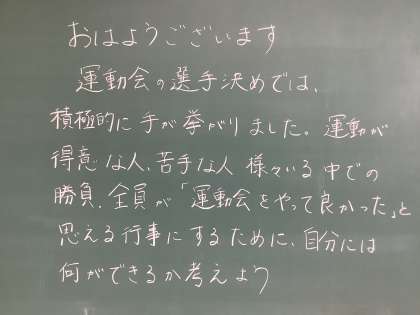 おはようございます
運動会の選手決めでは、
積極的に手が挙がりました。運動が
得意な人、苦手な人 様々いる中での
勝負、全員が「運動会をやって良かった」と
思える行事にするために、自分には
何ができるか考えよう